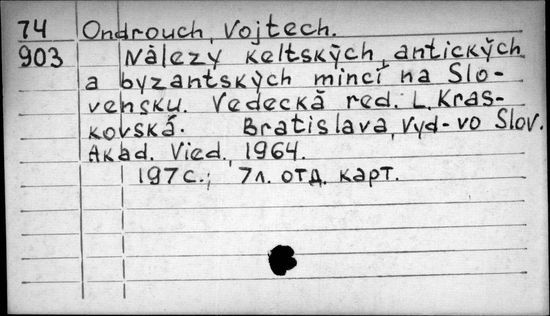 74 Ondrouch, Vojtech.
903 Nálezy keltských, antických
a byzantských mincí na Slo-
vensku. Vedecká red. L. Kras-
kovská. Bratislava, Vyd-vo Slov.
Akad. Vied., 1964.
197 с.; 7 л. отд. карт.